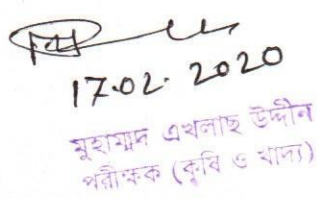 17.02.2020
মুহাম্মদ এখলাছ উদ্দীন
পরীক্ষক (কৃষি ও খাদ্য)